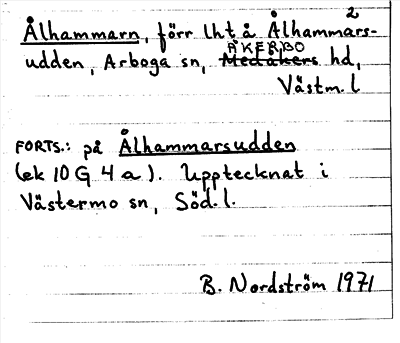 2
Ålhammarn, förr lht å Ålhammars-
udden, Arboga sn, ÅKERBO Medåkers hd,
Västm. l
FORTS.: på Ålhammarsudden
(ek 10 G 4 a). Upptecknat i
Västermo sn, Söd. l.
B. Nordström 1971